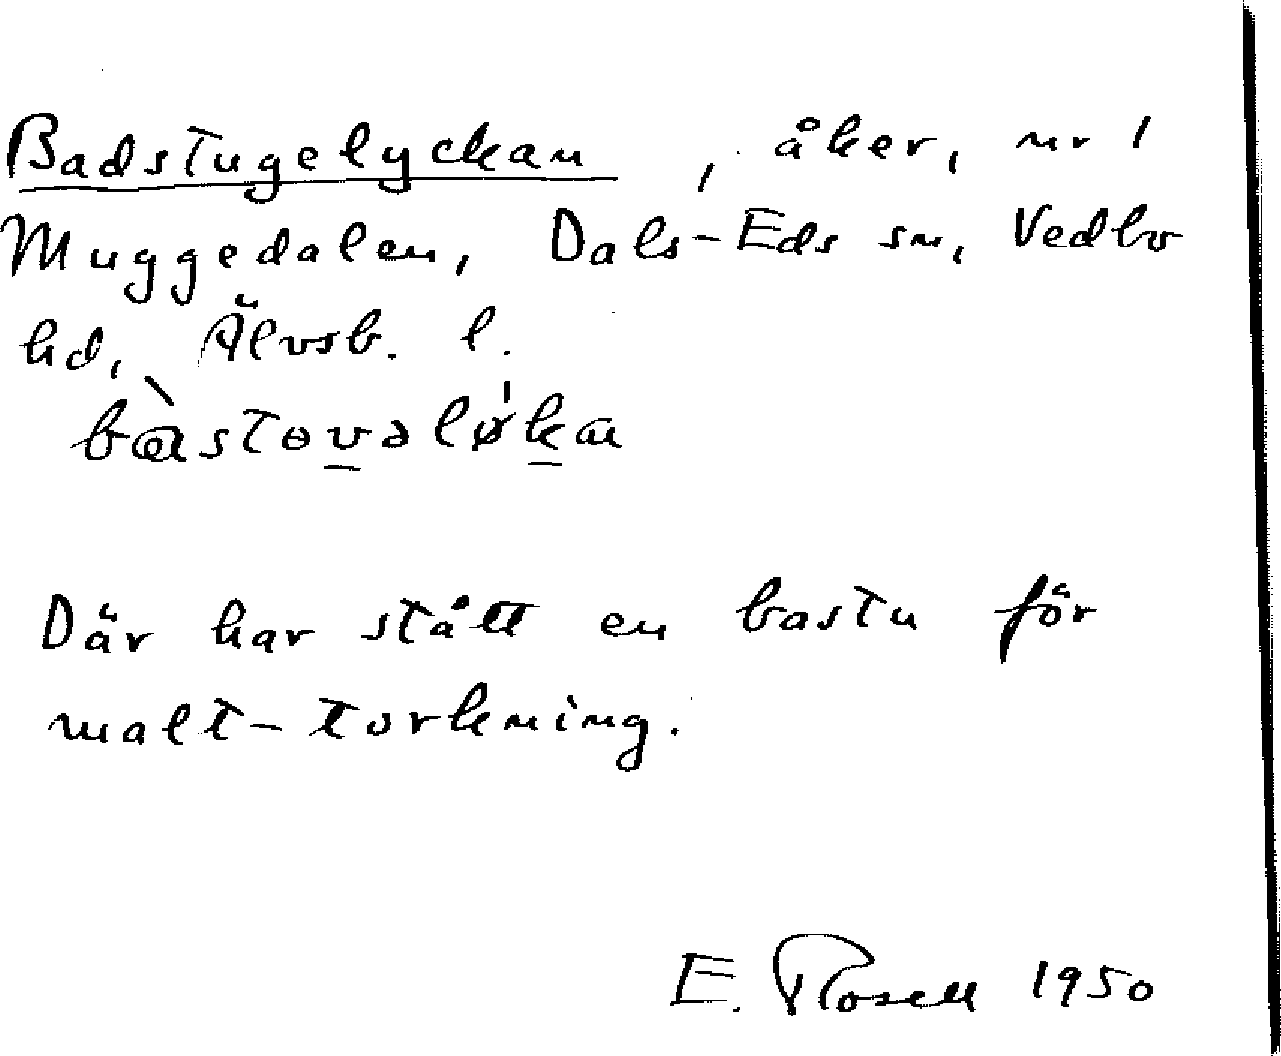 Badstugelyckan, åker, nr 1
Muggedalen, Dals-Eds sn, Vedbo
hd, Älvsb. l.
bàstovəlø̍ka
Där har stått en bastu för
malt-torkning.
E. Rosell 1950